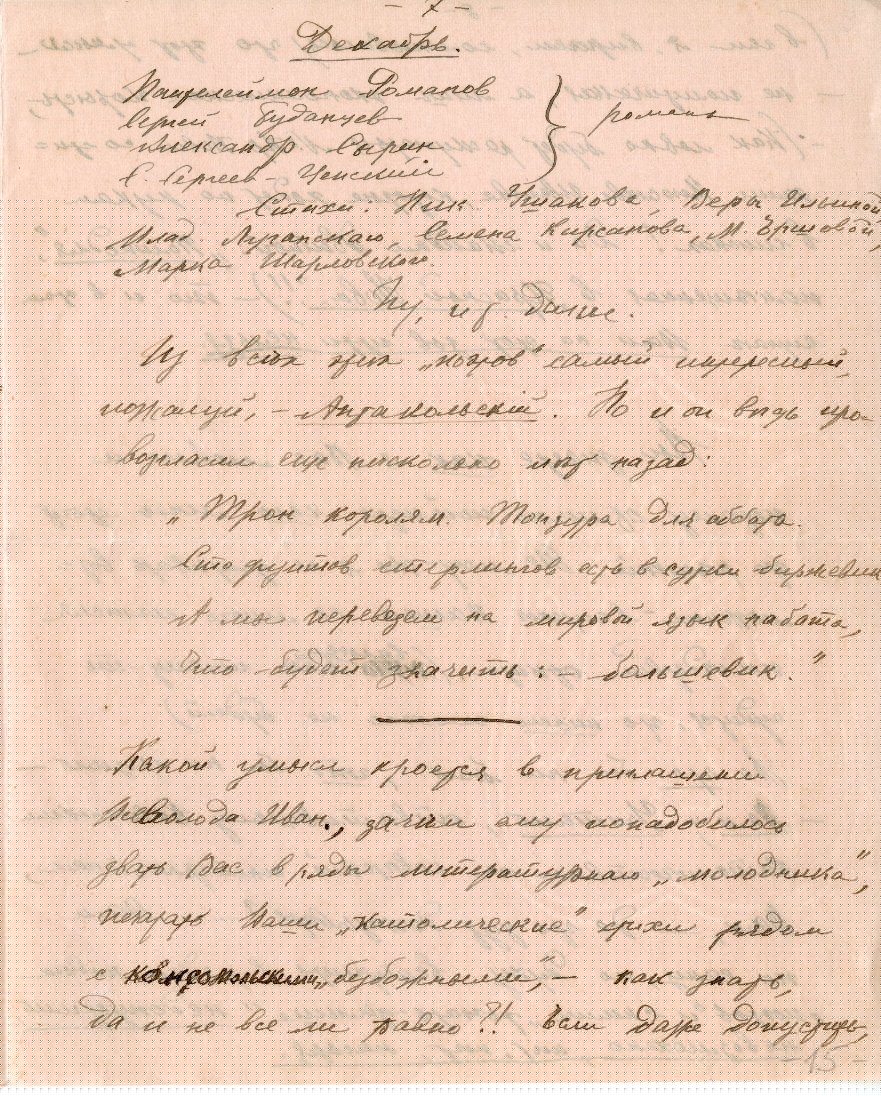 - 7 -
Декабрь.
Пантелеймон Романов
Сергей Буданцев
Александр Сытин
С. Сергеев-Ценский
} романы
Стихи: Ник. Ушакова, Веры Ильиной,
Влад. Луганского, Семена Кирсанова, М.
Марка Тарловского.
Ну, и т. далее.
Из всех этих „поэтов“ самый интересный,
пожалуй, – Антокольскій. Но и он ведь про-
возгласил еще несколько лет назад:
„Трон королям. Тонзура для аббата.
Сто фунтов стерлингов есть в сутки биржевик
А мы переведем на мировой язык набата,
Что будет значить: – большевик.“
Какой умысл кроется в приглашеніи
Всеволода Иван., зачем ему понадобилось
звать Вас в ряды литературнаго „молодняка“,
печатать Ваши „католические“ стихи рядом
с комсомольскими „безбожными“, – как знать,
Да и не все ли равно?!! Если даже допустить,
- 15 -